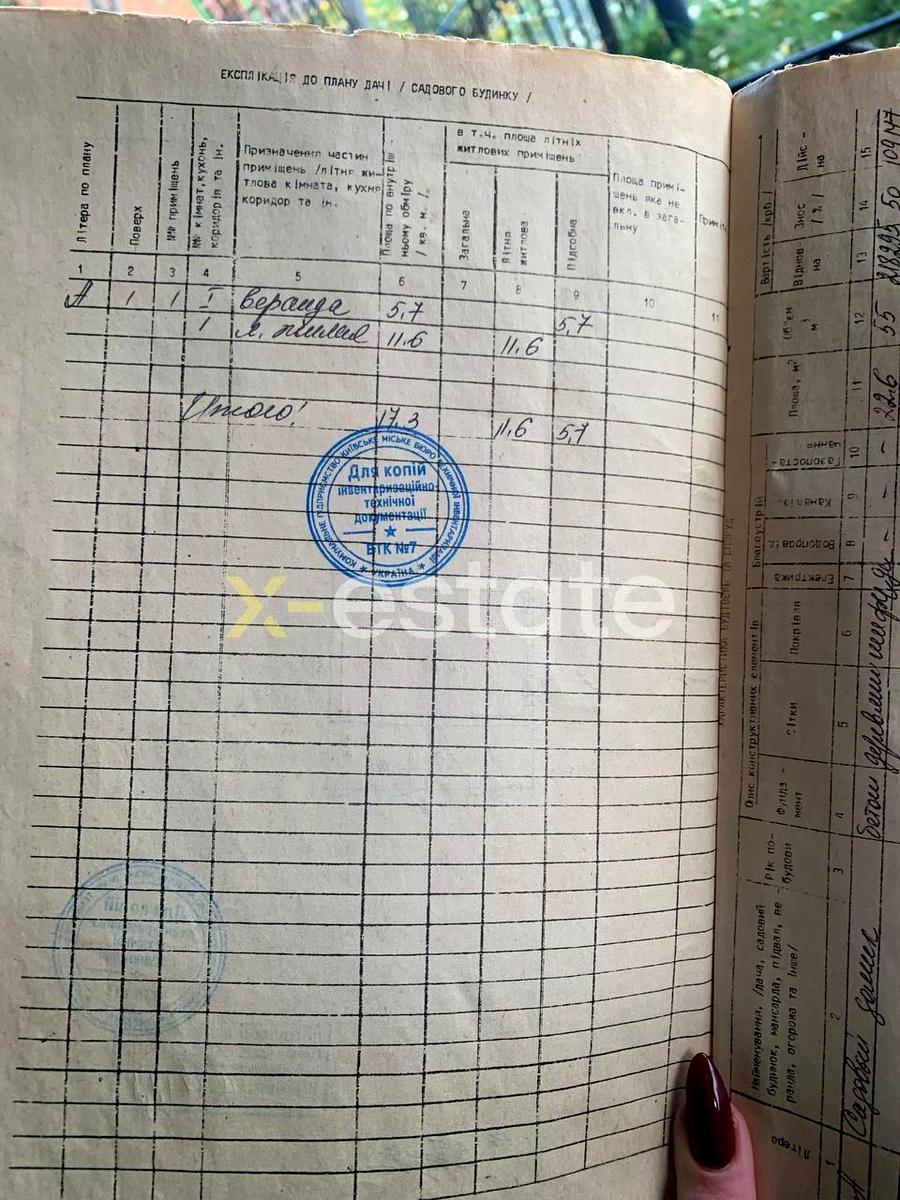 ЕКСПЛІКАЦІЯ ДО ПЛАНУ ДАЧІ / САДОВОГО БУДИНКУ /
Літера по плану
Поверх
№№ приміщень
№№ кімнат, кухонь, коридорів та ін.
Призначення частин
приміщень /літня жи-
тлова кімната, кухня
коридор та ін.
Площа по внутріш-
ньому обміру
/ кв. м. /.
в т.ч. площа літніх
житлових приміщень
Загальна
Літня
житлова
Підсобна
Площа примі-
щень яка не
вкл. в зага-
льну
1 2 3 4 5 6 7 8 9 10 11
А 1 1 I веранда 5,7 5,7
1 жилая 11.6 11.6
Итого! 17,3 11.6 5,7
КОМУНАЛЬНЕ ПІДПРИЄМСТВО КИЇВСЬКЕ МІСЬКЕ БЮРО ТЕХНІЧНОЇ ІНВЕНТАРИЗАЦІЇ
Для копій
інвентаризаційно-
технічної
документації
БТК №7
УКРАЇНА
x-estate
ХАРАКТЕРИСТИКА БУДІВЕЛЬ ТА СПОРУД
Літера
Найменування, /дача, садовий
будинок, мансарда, підвал, ве-
ранда, огорожа та інше/
Рік по-
будови
Опис конструктивних елементів
Фунда-
мент
Стіни
Покрівля
Благоустрій
Електрика
Водопровід.
Каналіз.
Газопоста-
чання
Площа, м²
Об'єм
м³
Вартість /крб/
Віднов-
на
Знос
/ % /
Дійс-
на
1 2 3 4 5 6 7 8 9 10 11 12 13 14 15
А Садовый домик бетон деревян шифер - - - 22.6 55 218295 50 109147